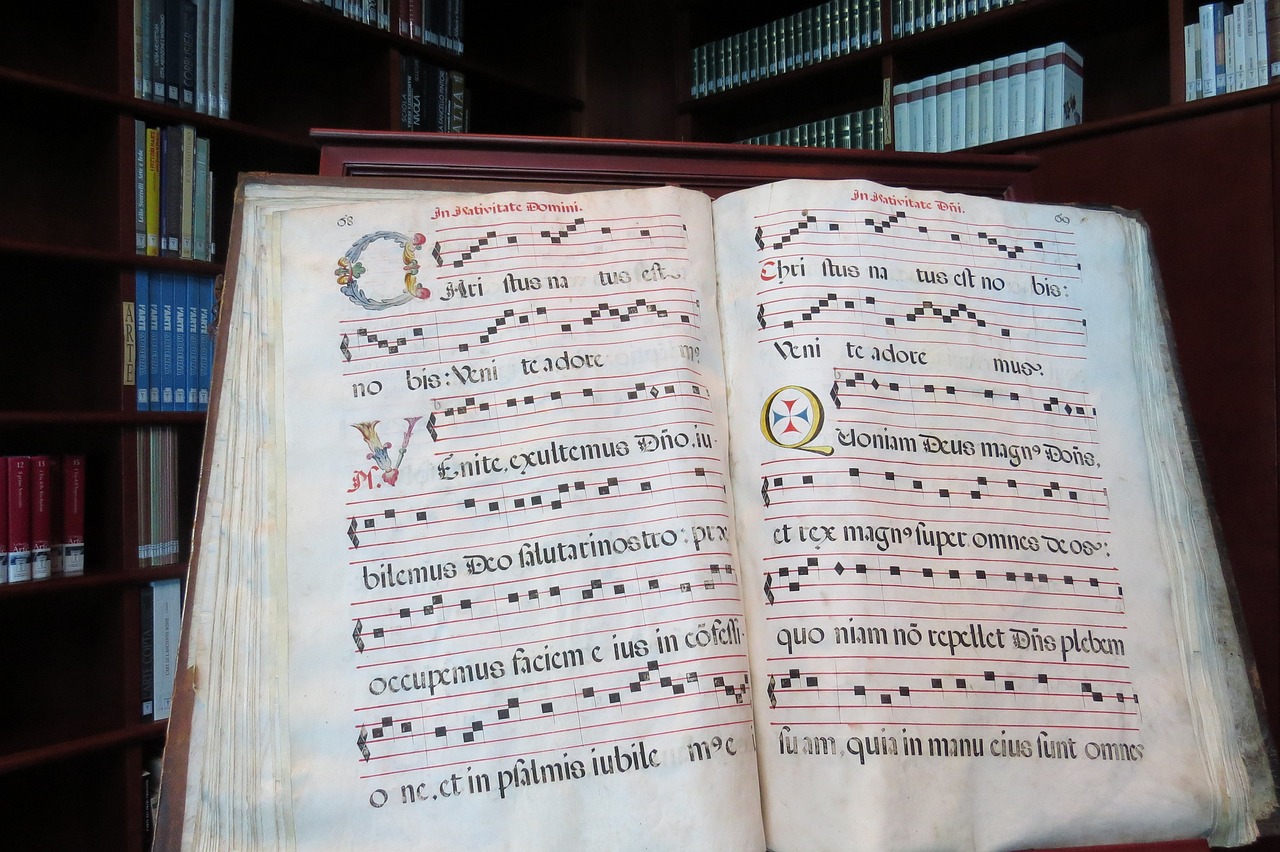 68
In Nativitate Domini.
CHri stus na tus est
no bis: Veni te adore m⁹
Ps. VEnite, exultemus Dño, iu-
bilemus Deo salutari nostro:
occupemus faciem e ius in cõfessi-
o ne, et in psalmis iubile m⁹ e
In Nativitate Dñi.
69
Chri stus na tus est no bis:
Veni te adore mus.
QUoniam Deus magn⁹ Doñs,
et rex magn⁹ super omnes deos:
quo niam nõ repellet Dñs plebem
su am, quia in manu eius sunt omnes
ARTE
L'ARTE
L'ARTE
L'ARTE
L'ARTE
L'ARTE